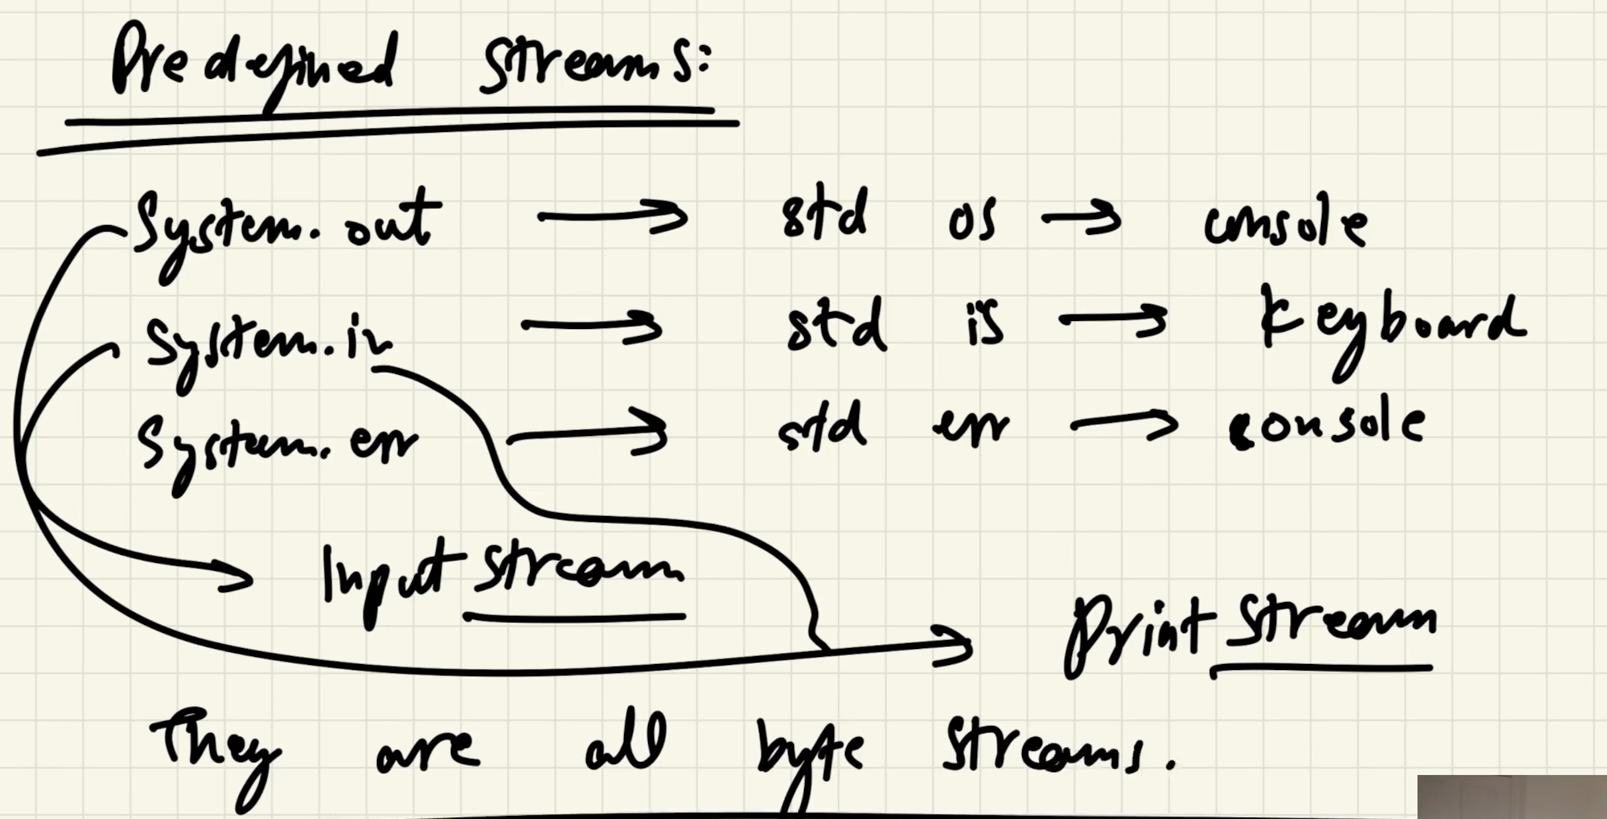 Predefined Streams:
System.out → std os → console
System.in → std is → keyboard
System.err → std err → console
InputStream
PrintStream
They are all byte streams.